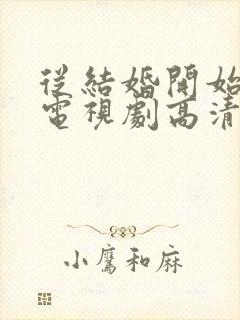 從結婚開始
電視劇高清
小鷹和麻